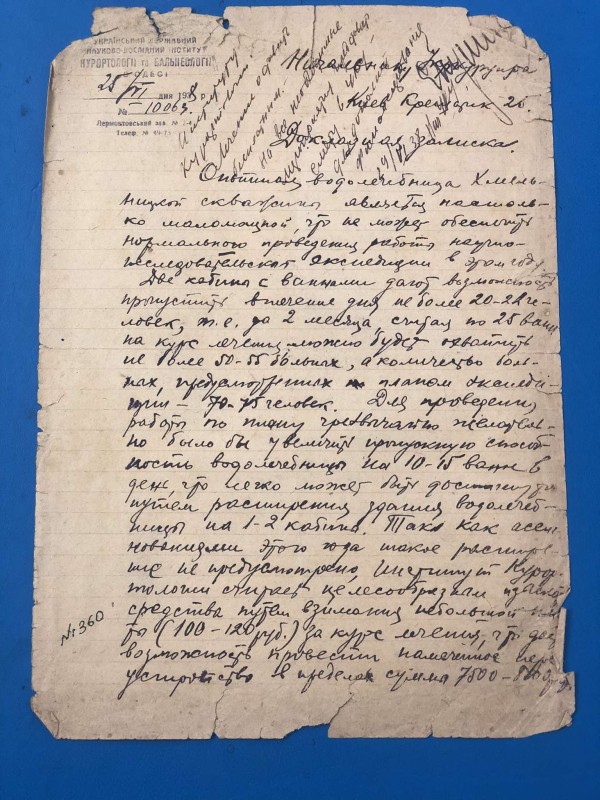 УКРАЇНСЬКИЙ ДЕРЖАВНИЙ
НАУКОВО-ДОСЛІДНИЙ ІНСТИТУТ
КУРОРТОЛОГІЇ ТА БАЛЬНЕОЛОГІЇ
25/VI дня 1938 р
№ 10069
Лермонтовський зав. №
Телеф. №
Начальник
Киев Крещатик 26.
Докладная записка.
Опытная водолечебница Хмель-
ницкой скважины является настоль-
ко маломощной, что не может обеспечить
нормального проведения работы научно-
исследовательской экспедиции в этом году
Две кабины с ваннами дают возможность
пропустить в течение дня не более 20-22 че-
ловек, т.е. за 2 месяца, считая по 25 ванн
на курс лечения, можно будет охватить
не более 50-55 больных, а количество боль-
ных, предусмотренных планом экспеди-
ции - 70-75 человек. Для проведения
работы по плану чрезвычайно желатель-
но было бы увеличить пропускную способ-
ность водолечебницы на 10-15 ванн в
день, что легко может быть достигнуто
путем расширения здания водолечеб-
ницы на 1-2 кабины. Так как ассиг-
нованиями этого года такое расшире-
ние не предусмотрено, Институт Курор-
тологии считает целесообразным
средства путем взимания небольшой
(100-120 руб.) за курс лечения, что дает
возможность провести намеченное пере-
устройство в пределах суммы 7500-
№ 360